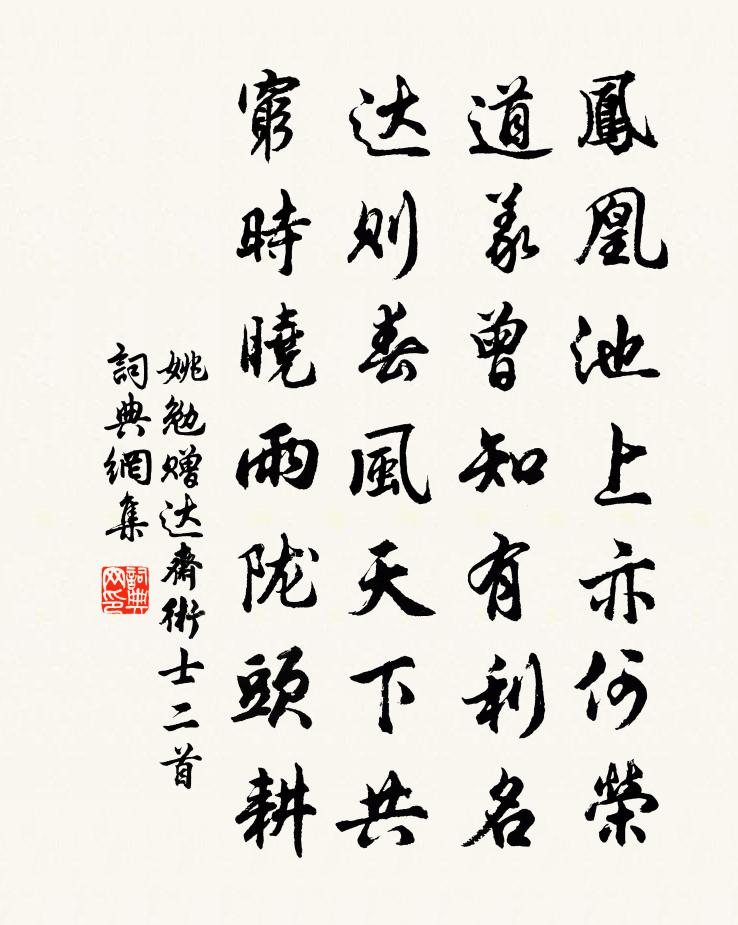 鳳凰池上亦何榮
道義曾知有利名
达则春風天下共
窮時曉雨陇頭耕
姚勉赠达齋術士二首
詞典網集
詞典网印